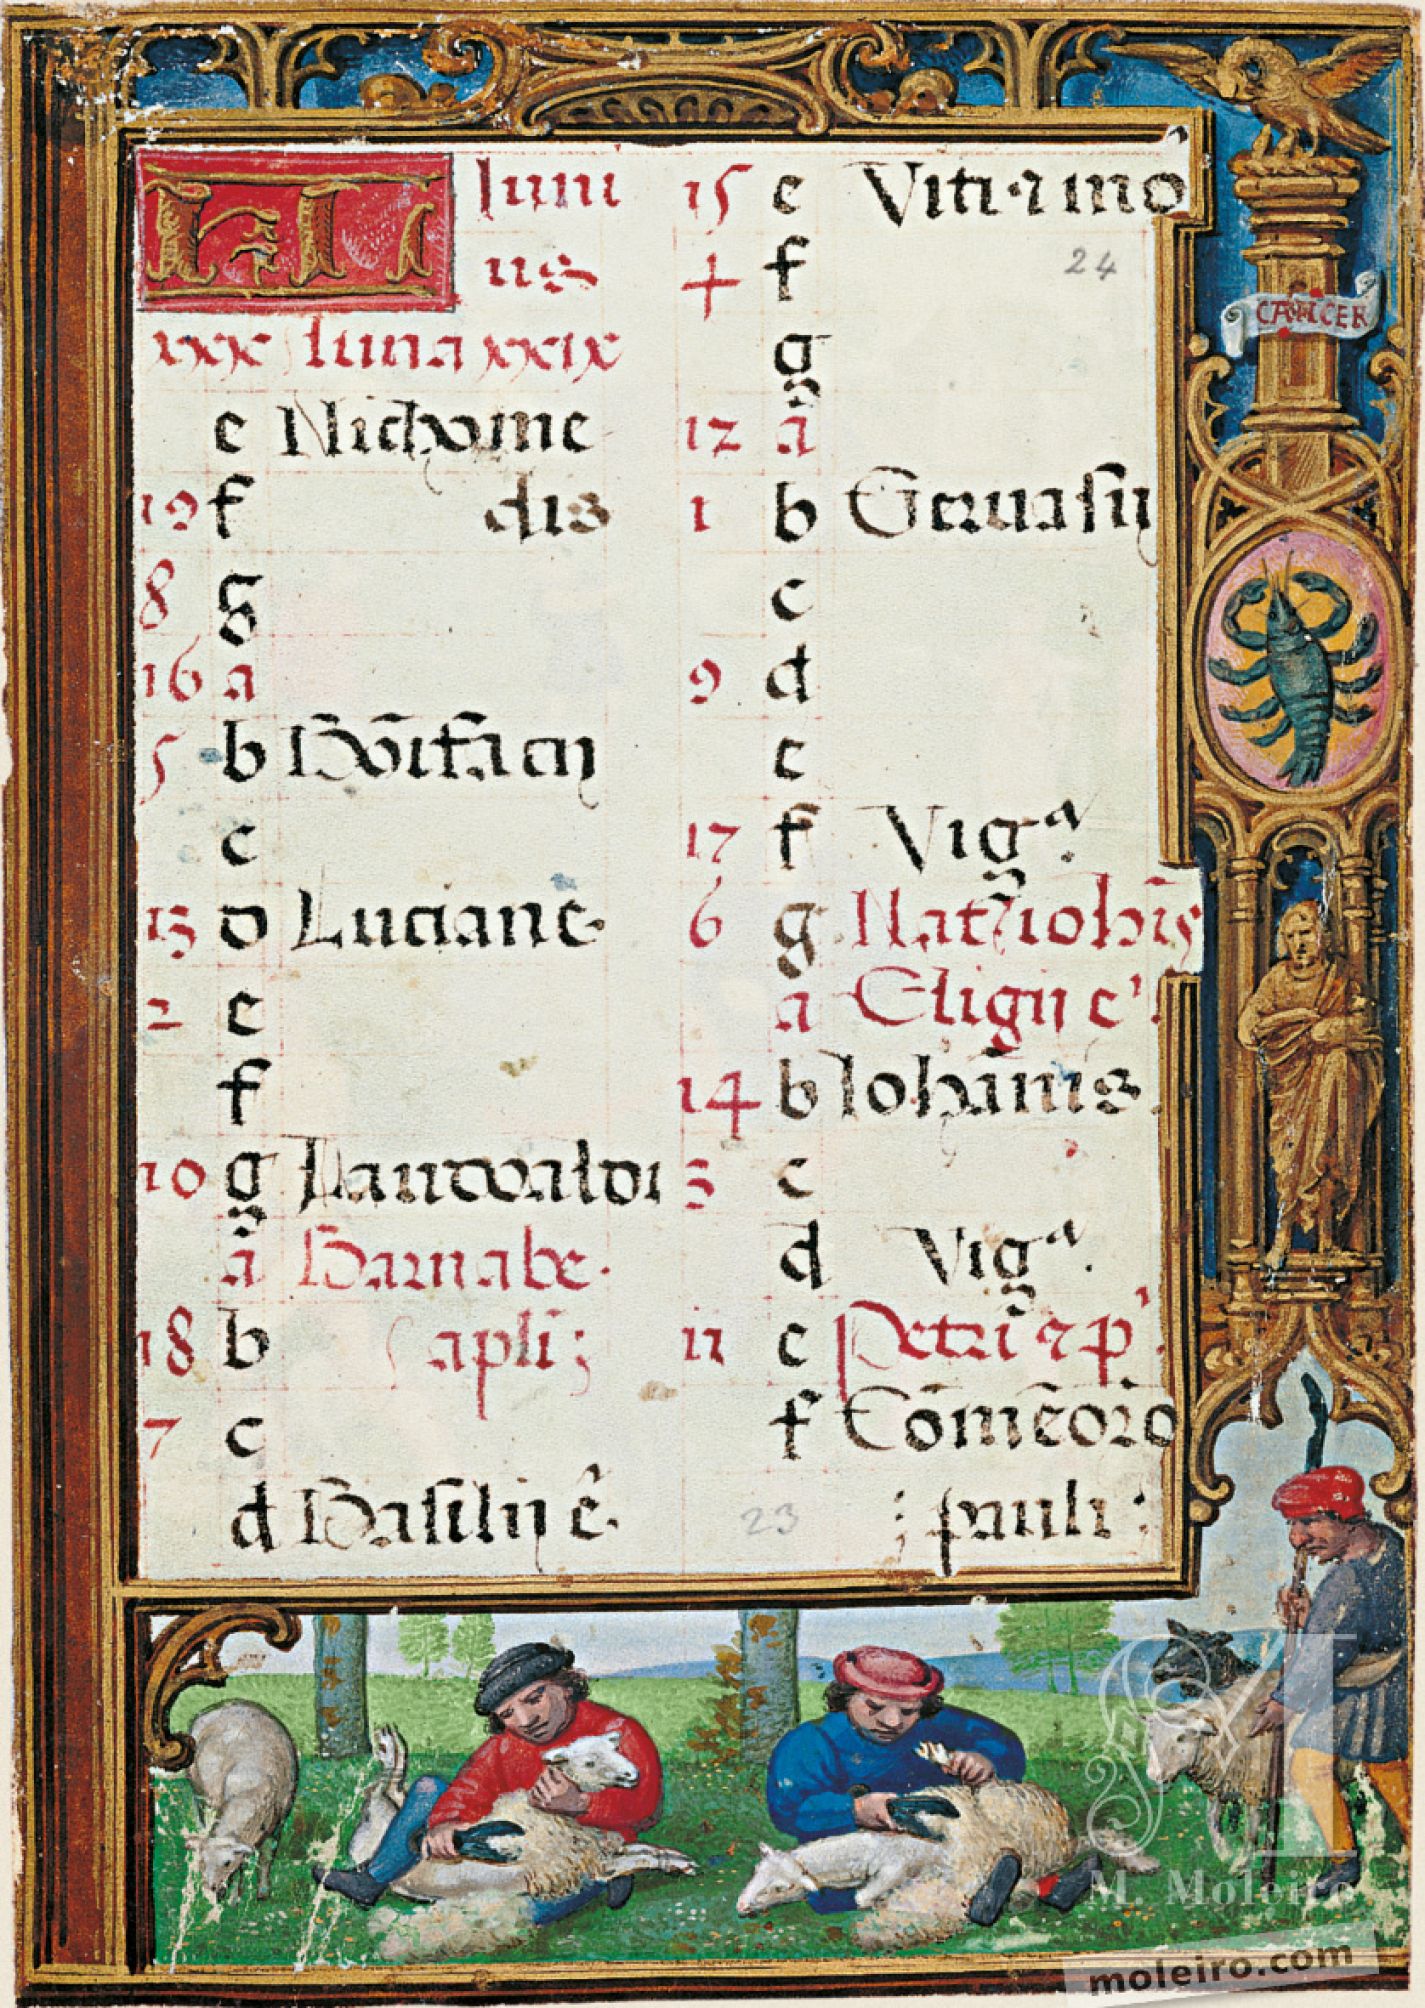 KL Juni
us
xxx luna xxix
e Nichome
19 f dis
8 g
16 a
5 b Bõifacij
c
13 d Luciane.
2 e
f
10 g
a Barnabe.
18 b apli;
7 c
d Basilij ẽ.
15 e Viti. ⁊ mõ
+ f
g
12 a
1 b Geruasij
c
9 d
e
17 f Vigᵃ.
6 g Nat. iohis
a Eligij e'.
14 b Iohãnis.
3 c
d Vigᵃ.
11 e Petri ⁊ p'.
f Cõmẽorõ
; pauli:
24
23
CANCER
M. Moleiro
moleiro.com